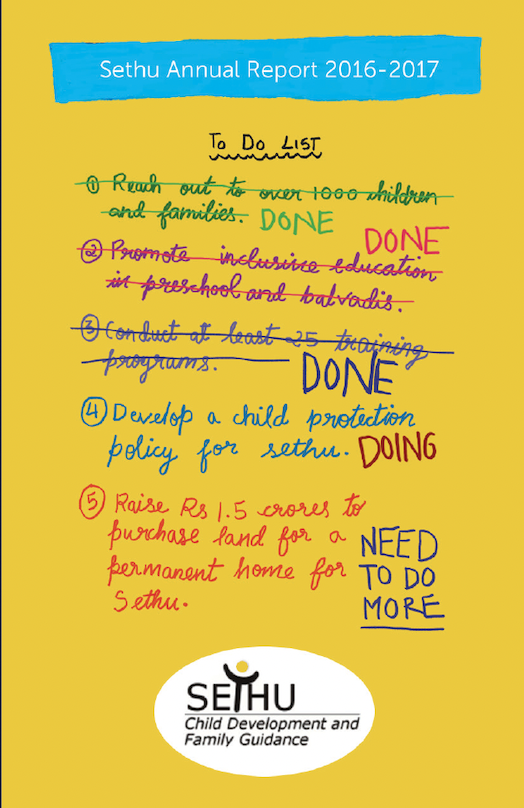 Sethu Annual Report 2016-2017
To Do List
① Reach out to over 1000 children
and families. DONE
DONE
② Promote inclusive education
in preschool and balvadis.
③ Conduct at least 25 training
programs. DONE
④ Develop a child protection
policy for sethu. DOING
⑤ Raise Rs 1.5 crores to
purchase land for a NEED
permanent home for TO DO
Sethu. MORE
SETHU
Child Development and
Family Guidance